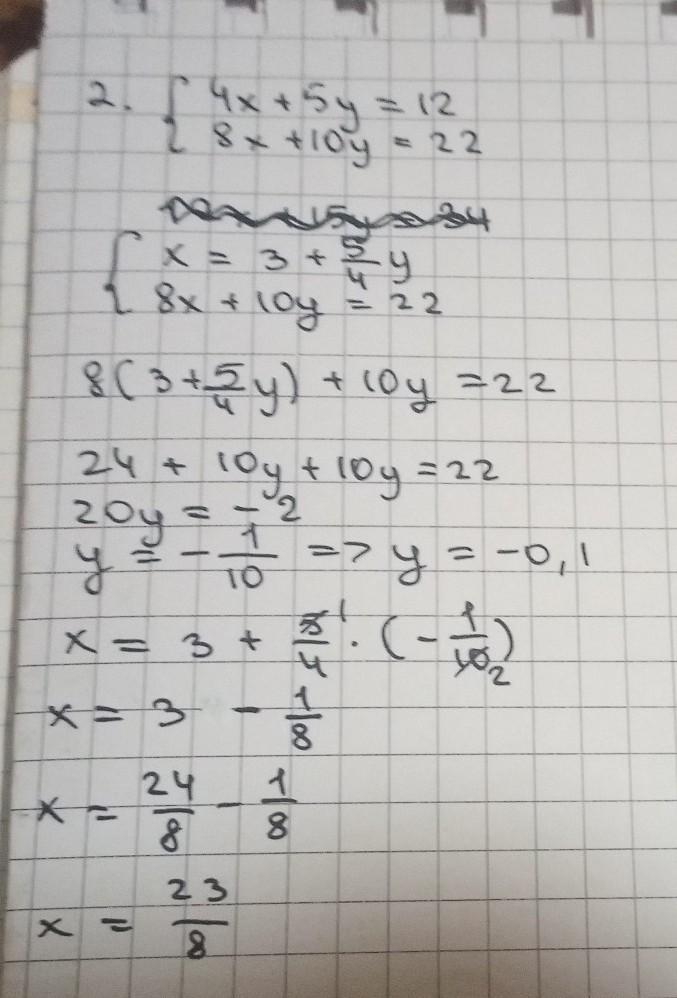 2. { 4x + 5y = 12
8x + 10y = 22
{ x = 3 + 5/4 y
8x + 10y = 22
8(3 + 5/4 y) + 10y = 22
24 + 10y + 10y = 22
20y = - 2
y = - 1/10 => y = -0,1
x = 3 + 5/4 1 · (- 1/10 2)
x = 3 - 1/8
x = 24/8 - 1/8
x = 23/8